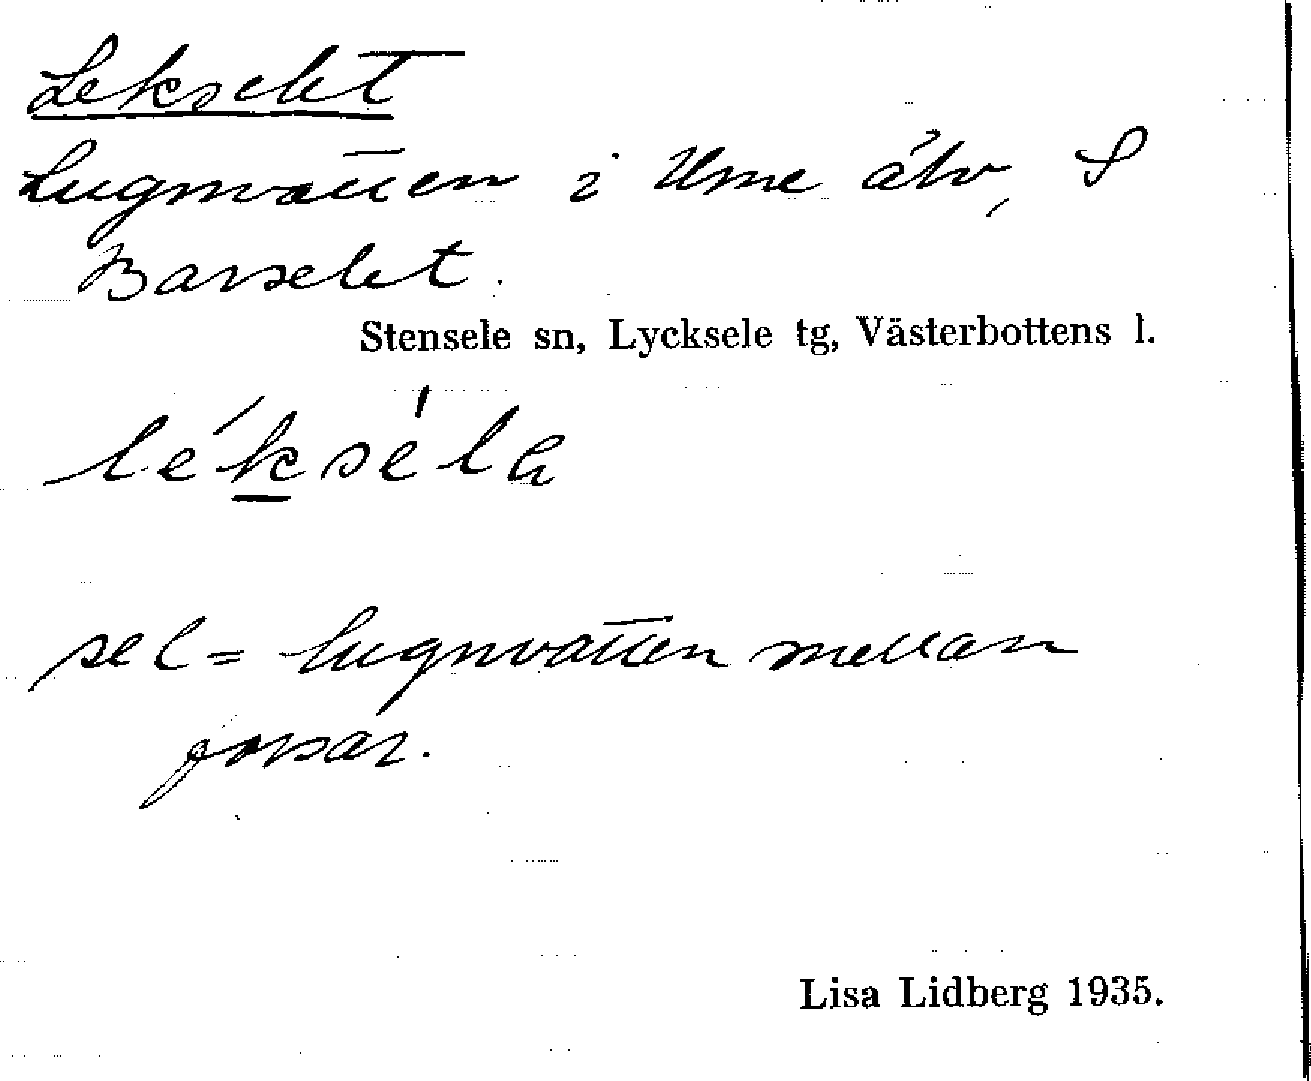 Lekselet
Lugnvatten i Ume älv, S
Barselet.
Stensele sn, Lycksele tg, Västerbottens l.
lékséla
sel = lugnvatten mellan
forsar.
Lisa Lidberg 1935.